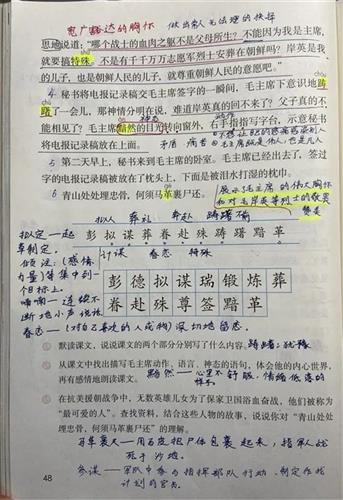 宽广豁达的胸怀 做出常人无法理的抉择
思地说道：“哪个战士的血肉之躯不是父母所生？不能因为我是主席，
就要搞特殊。不是有千千万万志愿军烈士安葬在朝鲜吗？岸英是我
的儿子，也是朝鲜人民的儿子，就尊重朝鲜人民的意愿吧。”
4 秘书将电报记录稿交毛主席签字的一瞬间，毛主席下意识地踌
chú
躇了一会儿，那神情分明在说，难道岸英真的回不来了？父子真的不
神态 动作
能相见了？毛主席黯然的目光转向窗外，右手指指写字台，示意秘书
将电报记录稿放在上面。
矛盾 痛苦
5 第二天早上，秘书来到毛主席的卧室。毛主席已经出去了，签过
字的电报记录稿被放在了枕头上，下面是被泪水打湿的枕巾。
6 青山处处埋忠骨，何须马革裹尸还。
展示毛主席的伟大胸怀
和对毛岸英等烈士的敬意
赞美
拟人 葬礼 奔赴 踌躇
彭拟谋葬眷赴殊踌躇黯革
拟定一起
草制定。
参谋 眷恋 特殊
彭德拟谋瑞锻炼葬
眷赴殊尊签黯革
力量）等集中到一
个目标上。
喃喃一连续不
断地小声说话
眷恋一（对自己喜欢的人或物）深切地留恋。
默读课文，说说课文的两个部分分别写了什么内容。
踌躇：犹豫
从课文中找出描写毛主席动作、语言、神态的语句，体会他的内心世界，
再有感情地朗读课文。
黯然一心里不舒服、情绪低落的
样子
在抗美援朝战争中，无数英雄儿女为了保家卫国浴血奋战，他们被称为
“最可爱的人”。查找资料，结合这些人物的故事，说说你对“青山处处
埋忠骨，何须马革裹尸还”的理解。
马革裹尸一用马皮把尸体包裹起来，指军人战
死于沙场。
参谋一军队中参与指挥部队行动、制定作战
计划的官员。
48